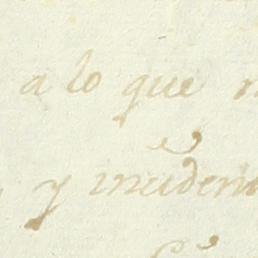 a lo que
y inciden